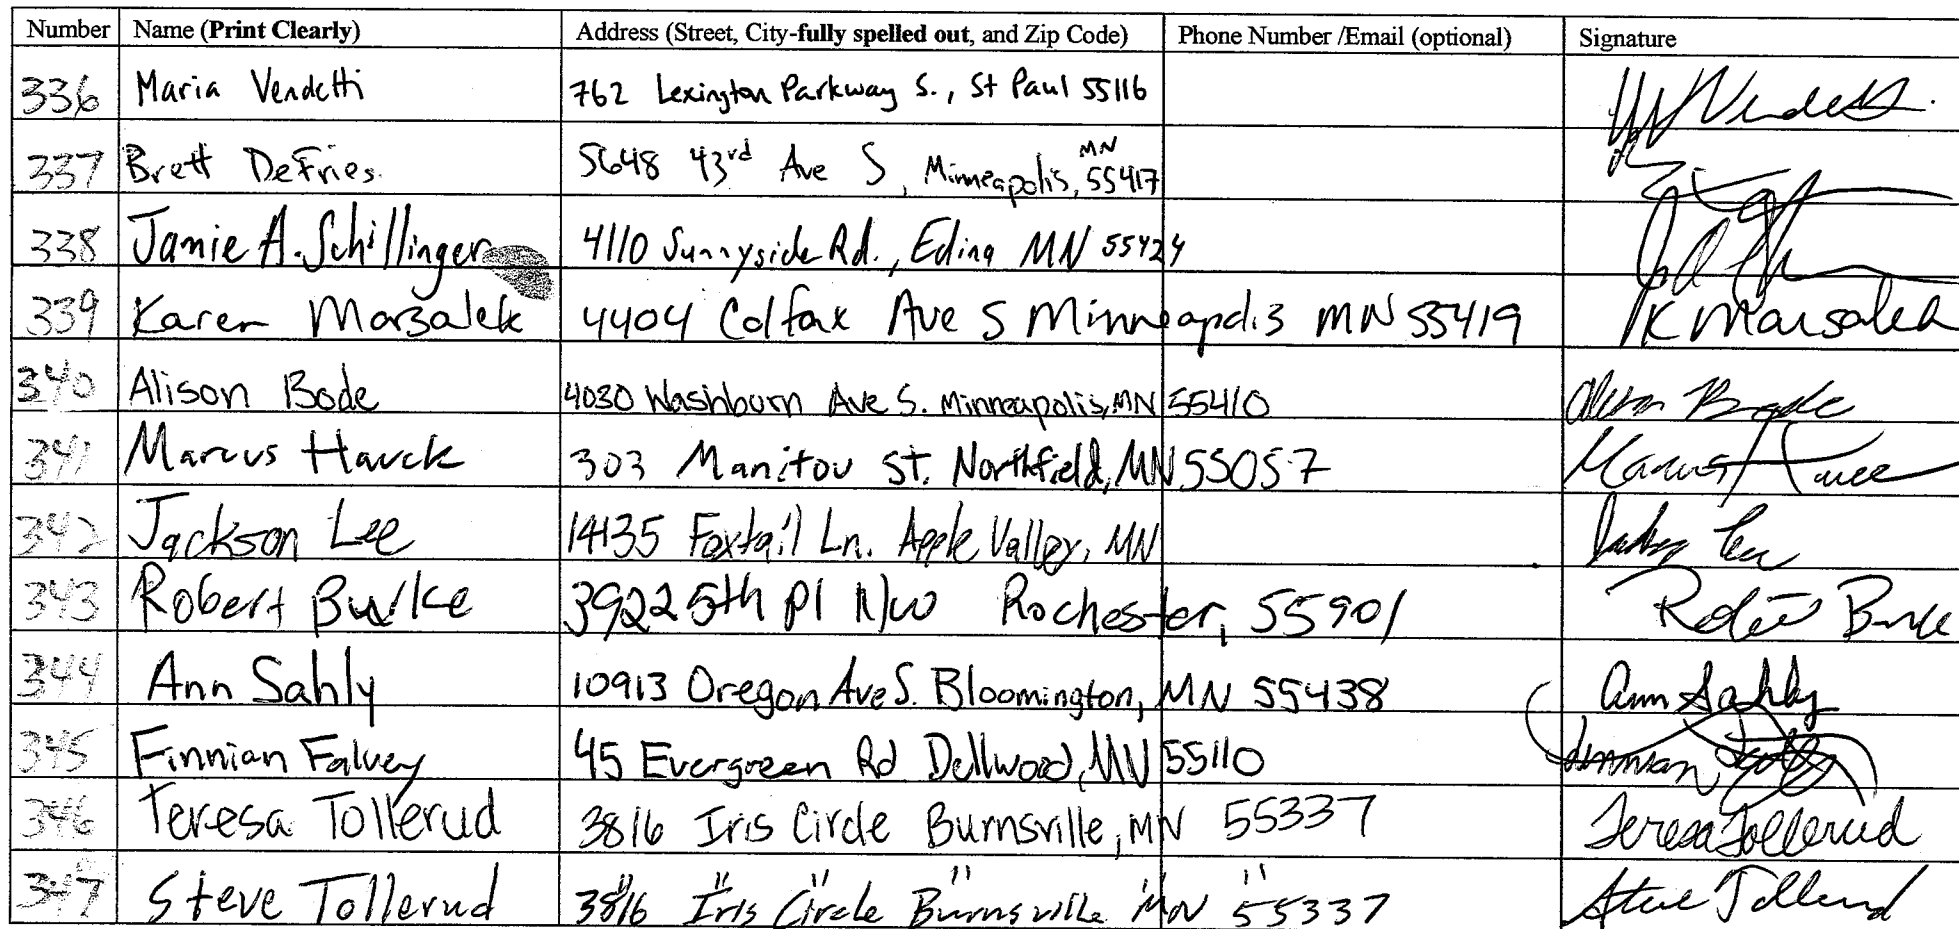 Number Name (Print Clearly) Address (Street, City-fully spelled out, and Zip Code) Phone Number /Email (optional) Signature
336 Maria Vendetti 762 Lexington Parkway S., St Paul 55116 Vendetti
337 Brett DeFries. 5648 43rd Ave S, Minneapolis, MN 55417
338 Jamie A. Schillinger 4110 Sunnyside Rd., Edina MN 55424
339 Karen Marzalek 4404 Colfax Ave S Minneapolis MN 55419 K Marsalek
340 Alison Bode 4030 Washburn Ave S. Minneapolis, MN 55410 Alison Bode
341 Marcus Hauck 303 Manitou St. Northfield, MN 55057 Marcus Hauck
342 Jackson Lee 14135 Foxtail Ln. Apple Valley, MN Lee
343 Robert Burke 3922 5th Pl NW Rochester, 55901 Robert Burke
344 Ann Sahly 10913 Oregon Ave S. Bloomington, MN 55438 Ann Sahly
345 Finnian Falvey 45 Evergreen Rd Dellwood, MN 55110 Finnian
346 Teresa Tollerud 3816 Iris Circle Burnsville, MN 55337 Teresa Tollerud
347 Steve Tollerud 3816 Iris Circle Burnsville MN 55337 Steve Tollerud